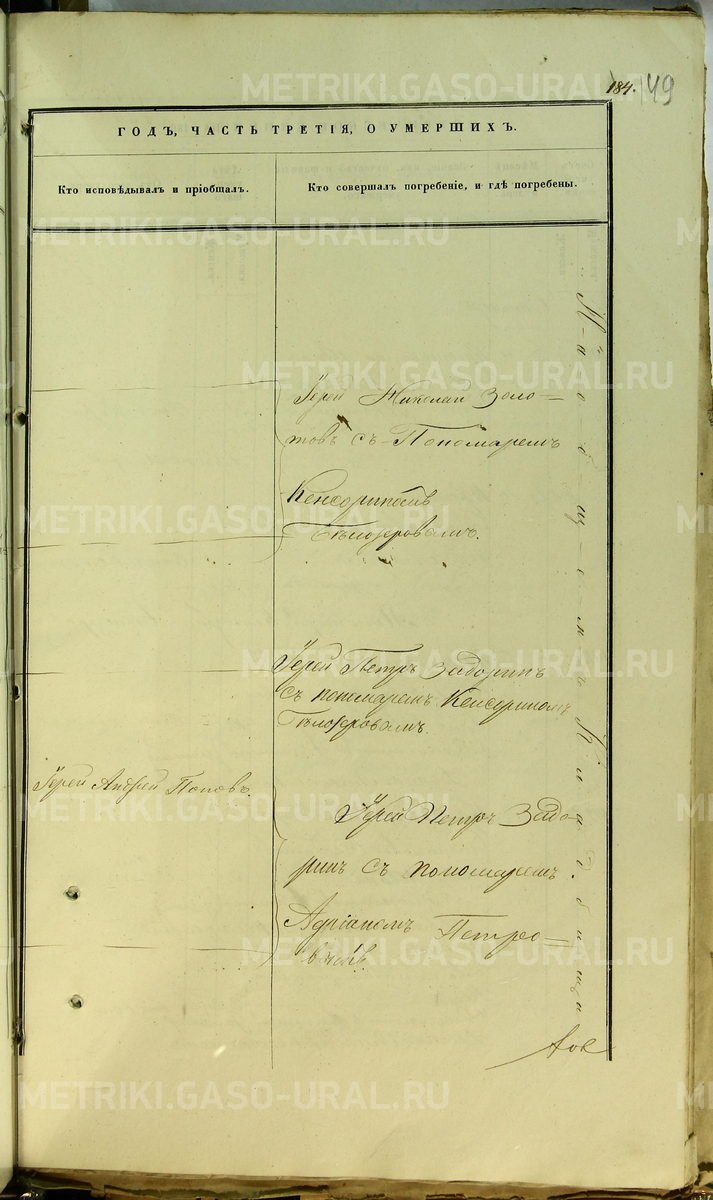 184. 149
ГОДЪ, ЧАСТЬ ТРЕТІЯ, О УМЕРШИХЪ.
Кто исповѣдывалъ и пріобщалъ.
Кто совершалъ погребеніе, и гдѣ погребены.
Іерей Николай Золо=
товъ съ Пономаремъ
Бѣлозеровамъ.
Іерей Петръ Задоринъ
съ пономарамъ Кенсориномъ
Бѣлозеровамъ.
Іерей Андрей Поповъ.
Іерей Петръ Задо-
ринъ съ пономаремъ
Адріаномъ Петро=
На общемъ Кладбищи
METRIKI.GASO-URAL.RU